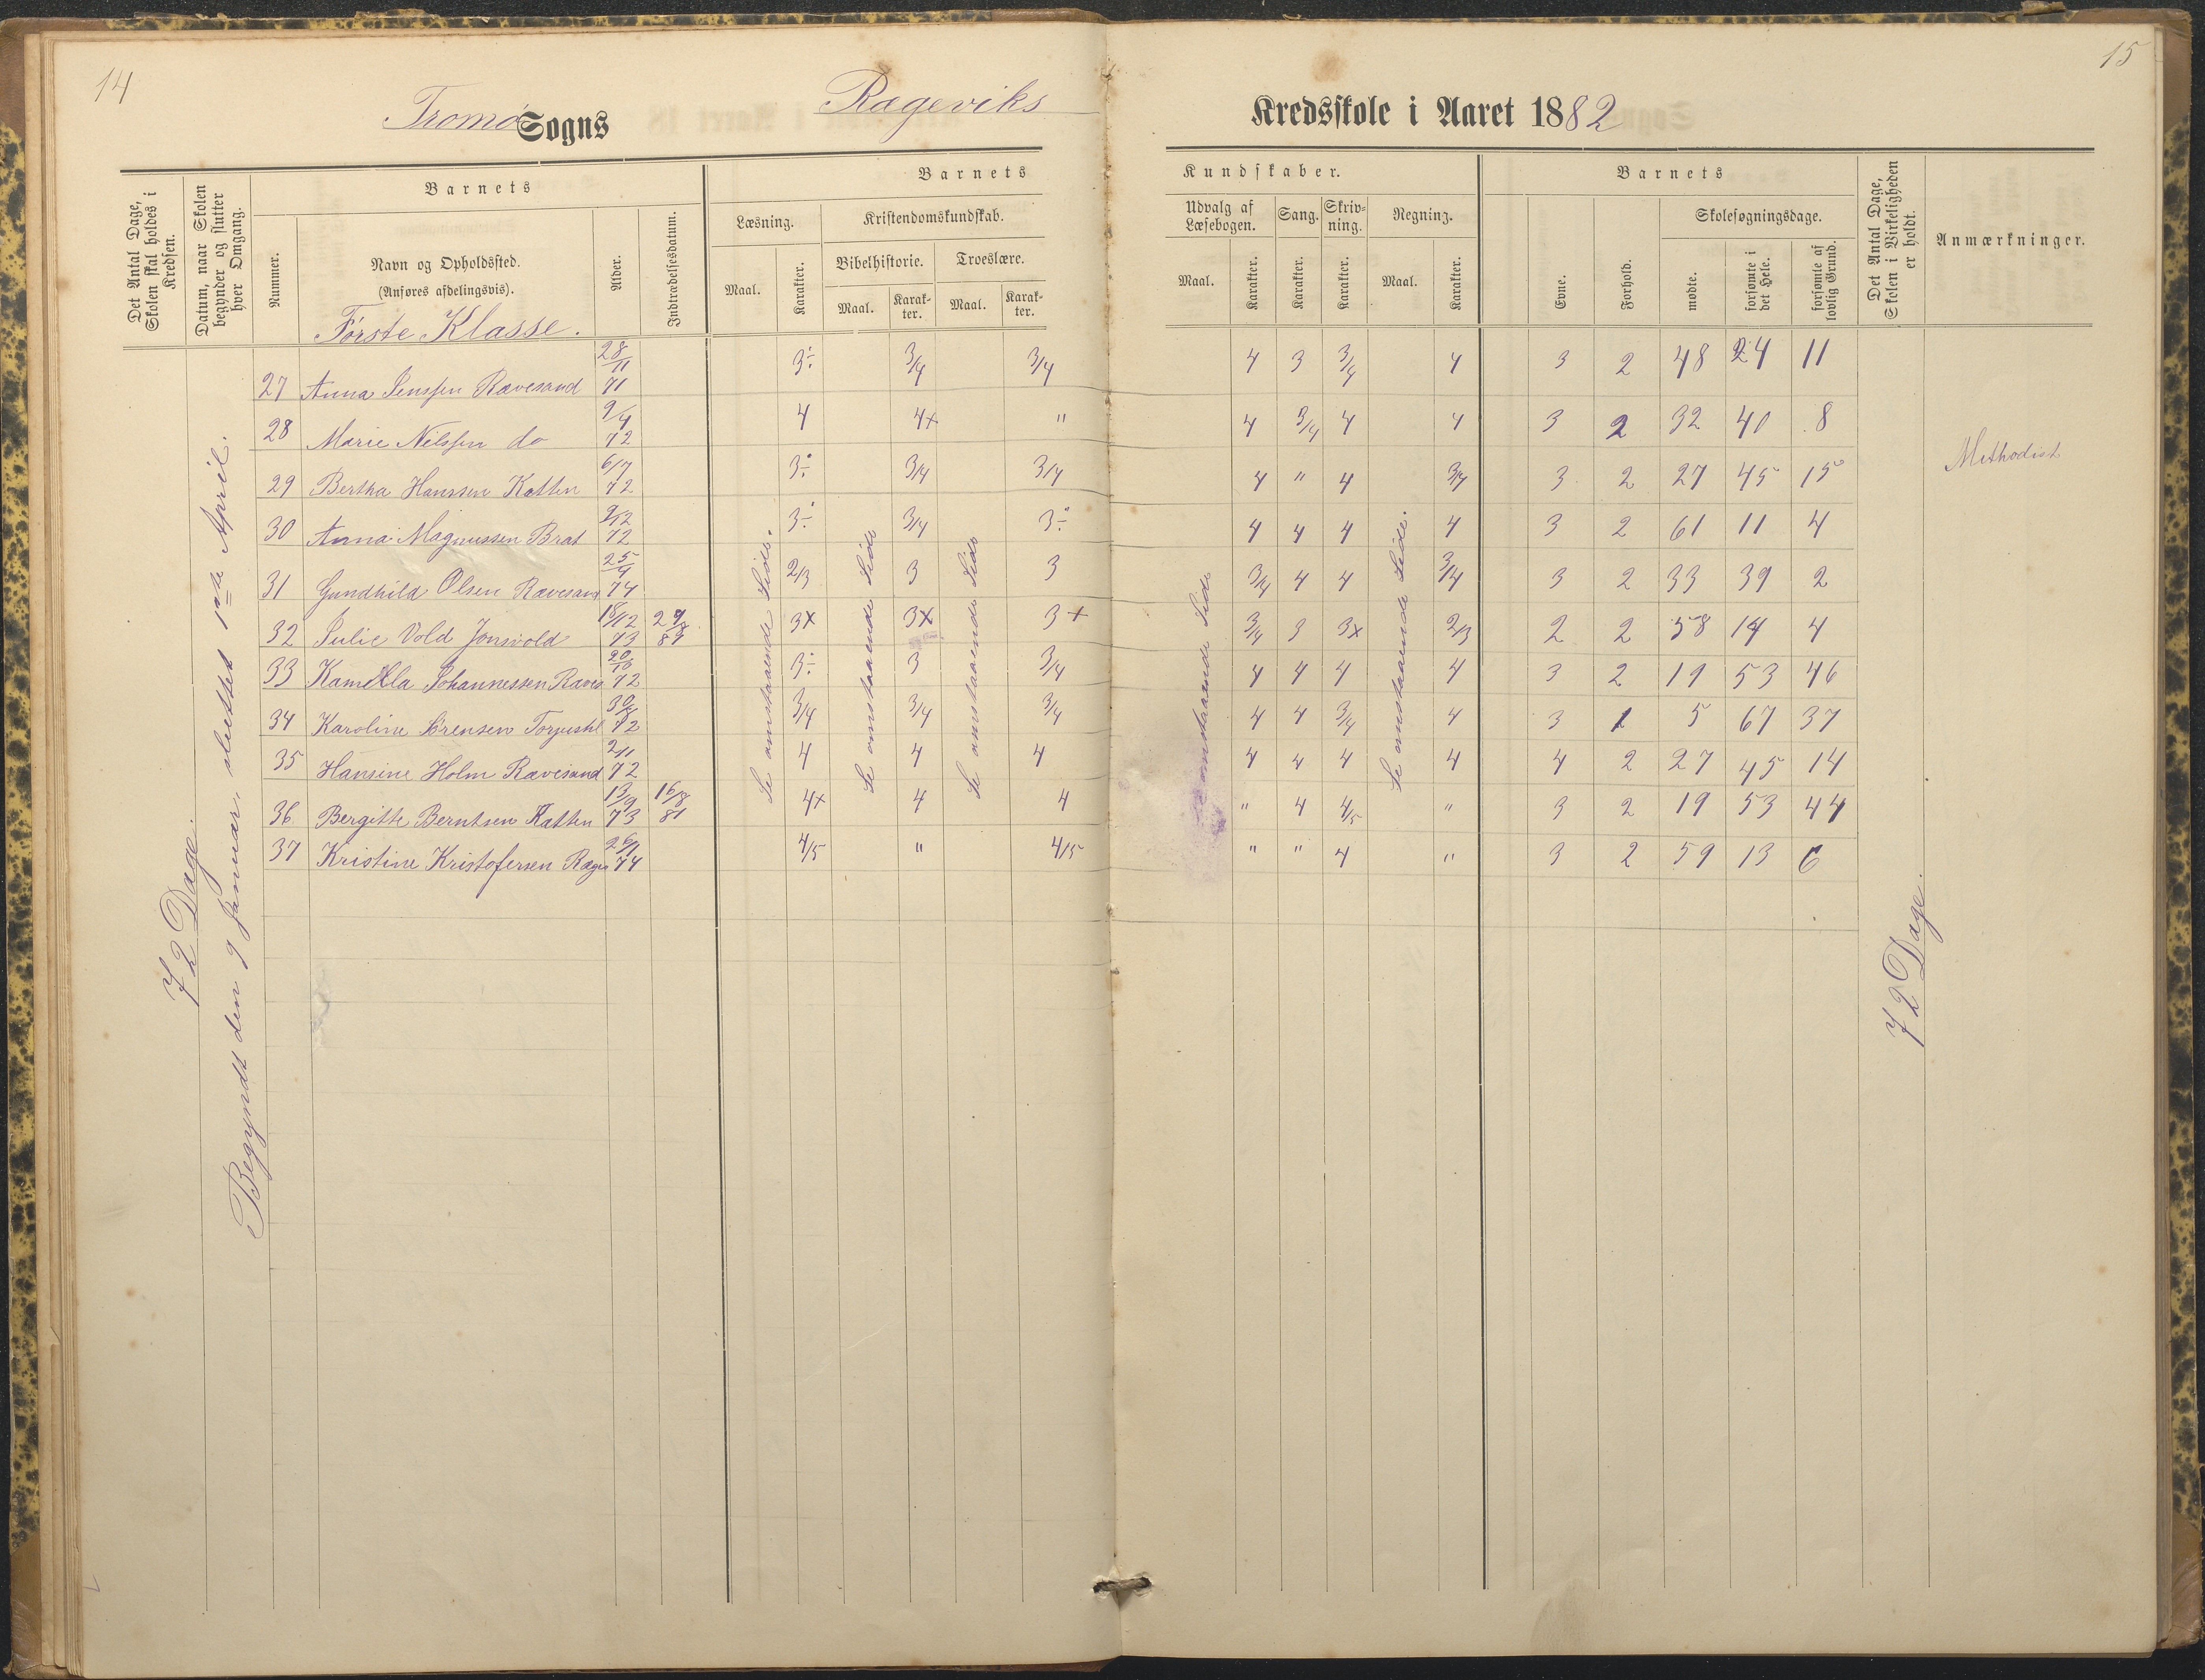 14
15
Tromø Sogns Rageviks Kredsskole i Aaret 1882
Det Antal Dage, Skolen skal holdes i Kredsen.
Datum, naar Skolen begynder og slutter hver Omgang.
Barnets
Nummer.
Navn og Opholdssted.
(Anføres afdelingsvis).
Første Klasse.
Alder.
Indtrædelsesdatum.
Barnets Kundskaber.
Læsning.
Kristendomskundskab.
Bibelhistorie. Troeslære.
Maal. Karakter. Maal. Karakter. Maal. Karakter.
Udvalg af Læsebogen. Sang. Skrivning. Regning.
Maal. Karakter. Karakter. Karakter. Maal. Karakter.
Barnets
Evne. Forhold.
Skolesøgningsdage.
mødte. forsømte i det Hele. forsømte af lovlig Grund.
Det Antal Dage, Skolen i Virkeligheden er holdt.
Anmærkninger.
72 Dage.
Begyndt den 9 Januar, sluttet 1ste April.
Se omstaaende Side.
Se omstaaende Side
Se omstaaende Side
Se omstaaende Side
Se omstaaende Side.
72 Dage.
27 Anna Jenssen Ravesand 28/11 71 3÷ 3/4 3/4 4 3 3/4 4 3 2 48 24 11
28 Marie Nilssen do 9/4 72 4 4+ " 4 3/4 4 4 3 2 32 40 8
Methodist
29 Bertha Hanssen Katten 6/7 72 3÷ 3/4 3/4 4 " 4 3/4 3 2 27 45 15
30 Anna Magnussen Brat 9/12 72 3÷ 3/4 3÷ 4 4 4 4 3 2 61 11 4
31 Gundhild Olsen Ravesand 25/9 74 2/3 3 3 3/4 4 4 3/4 3 2 33 39 2
32 Julie Vold Jonsvold 18/12 73 3x 3x 3+ 3/4 3 3x 2/3 2 2 58 14 4
33 Kamilla Johannessen Raves 20/10 72 3÷ 3 3/4 4 4 4 4 3 2 19 53 46
34 Karoline Sørensen 72 3/4 3/4 3/4 4 4 3/4 4 3 1 5 67 37
35 Hansine Holm Ravesand 2/11 72 4 4 4 4 4 4 4 4 2 27 45 14
36 Bergitte Berntsen Katten 13/9 73 16/8 81 4+ 4 4 " 4 4/5 " 3 2 19 53 44
37 Kristine Kristofersen Ragev 26/1 74 4/5 " 4/5 " " 4 " 3 2 59 13 6